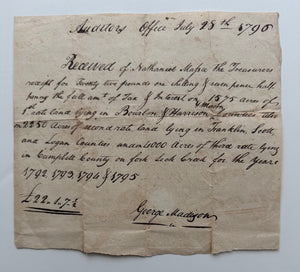 Auditors Office July 28th 1796
Received of Nathaniel Massie the Treasurers
receipt for Twenty two pounds one shilling & seven pence half
penny the full am't of Tax & Interest on 1575 acres of
& Mason
1st rate land lying in Bourbon & Harrison Counties also
on 2250 Acres of second rate land lying in Franklin, Scott
and Logan Counties and 1000 Acres of third rate lying
in Campbell County on fork lick Creek for the Years
1792. 1793. 1794 & 1795
£22.1.7½
George Madison